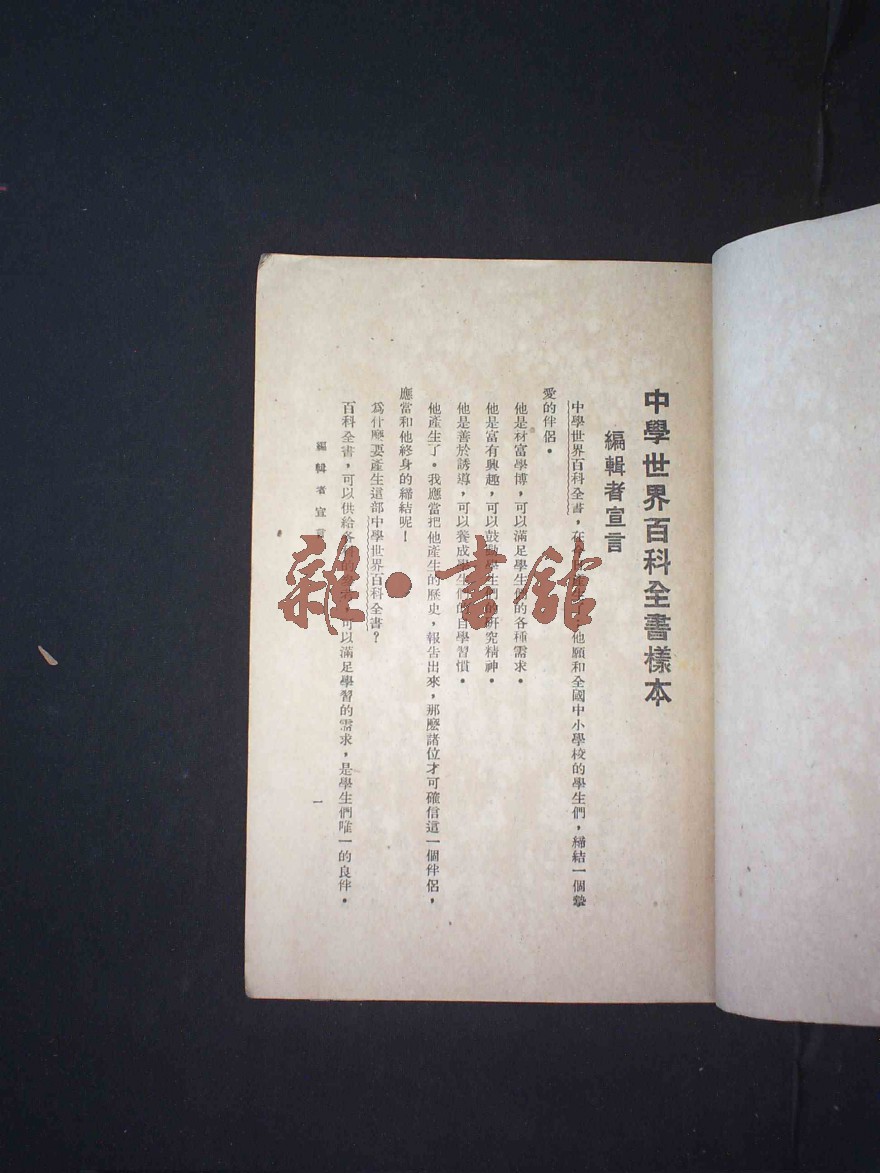 中學世界百科全書樣本
編輯者宣言
中學世界百科全書，在產生了：他願和全國中小學校的學生們，締結一個摯
愛的伴侶。
他是材富學博，可以滿足學生們的各種需求。
他是富有興趣，可以鼓勵學生們的研究精神。
他是善於誘導，可以養成學生們的自學習慣。
他產生了。我應當把他產生的歷史，報告出來，那麼諸位才可確信這一個伴侶，
應當和他終身的締結呢！
為什麼要產生這部中學世界百科全書？
百科全書，可以供給各可以滿足學習的需求，是學生們唯一的良伴。
編輯者宣言
一
雜·書館